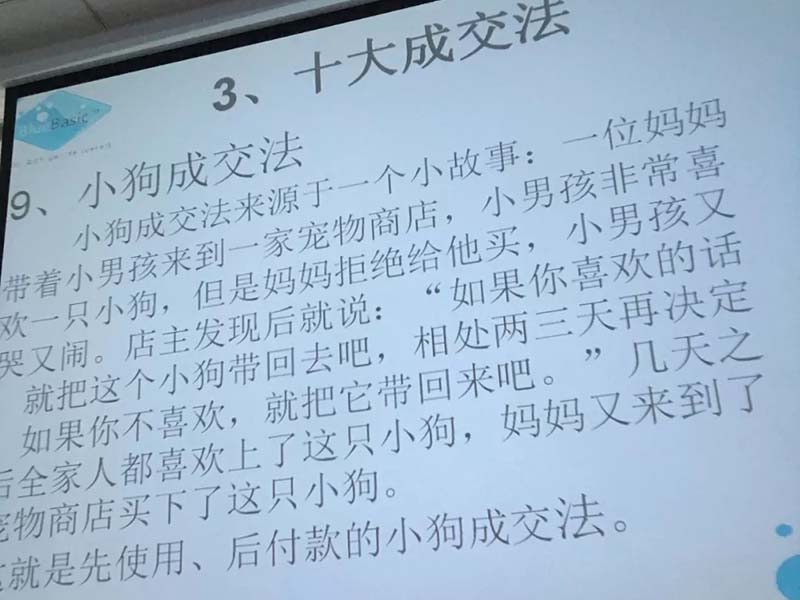 3、十大成交法
BlueBasic
9、小狗成交法
小狗成交法来源于一个小故事：一位妈妈
带着小男孩来到一家宠物商店，小男孩非常喜
欢一只小狗，但是妈妈拒绝给他买，小男孩又
哭又闹。店主发现后就说：“如果你喜欢的话
就把这个小狗带回去吧，相处两三天再决定
如果你不喜欢，就把它带回来吧。”几天之
后全家人都喜欢上了这只小狗，妈妈又来到了
宠物商店买下了这只小狗。
这就是先使用、后付款的小狗成交法。